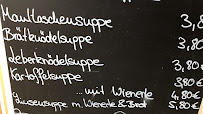 Maultaschensuppe 3,80
Brätknödelsuppe 3,80
Leberknödelsuppe 3,80
Kartoffelsuppe 3,80€
...mit Wienerle 4,80€
m. Wienerle & Brot 5,80€